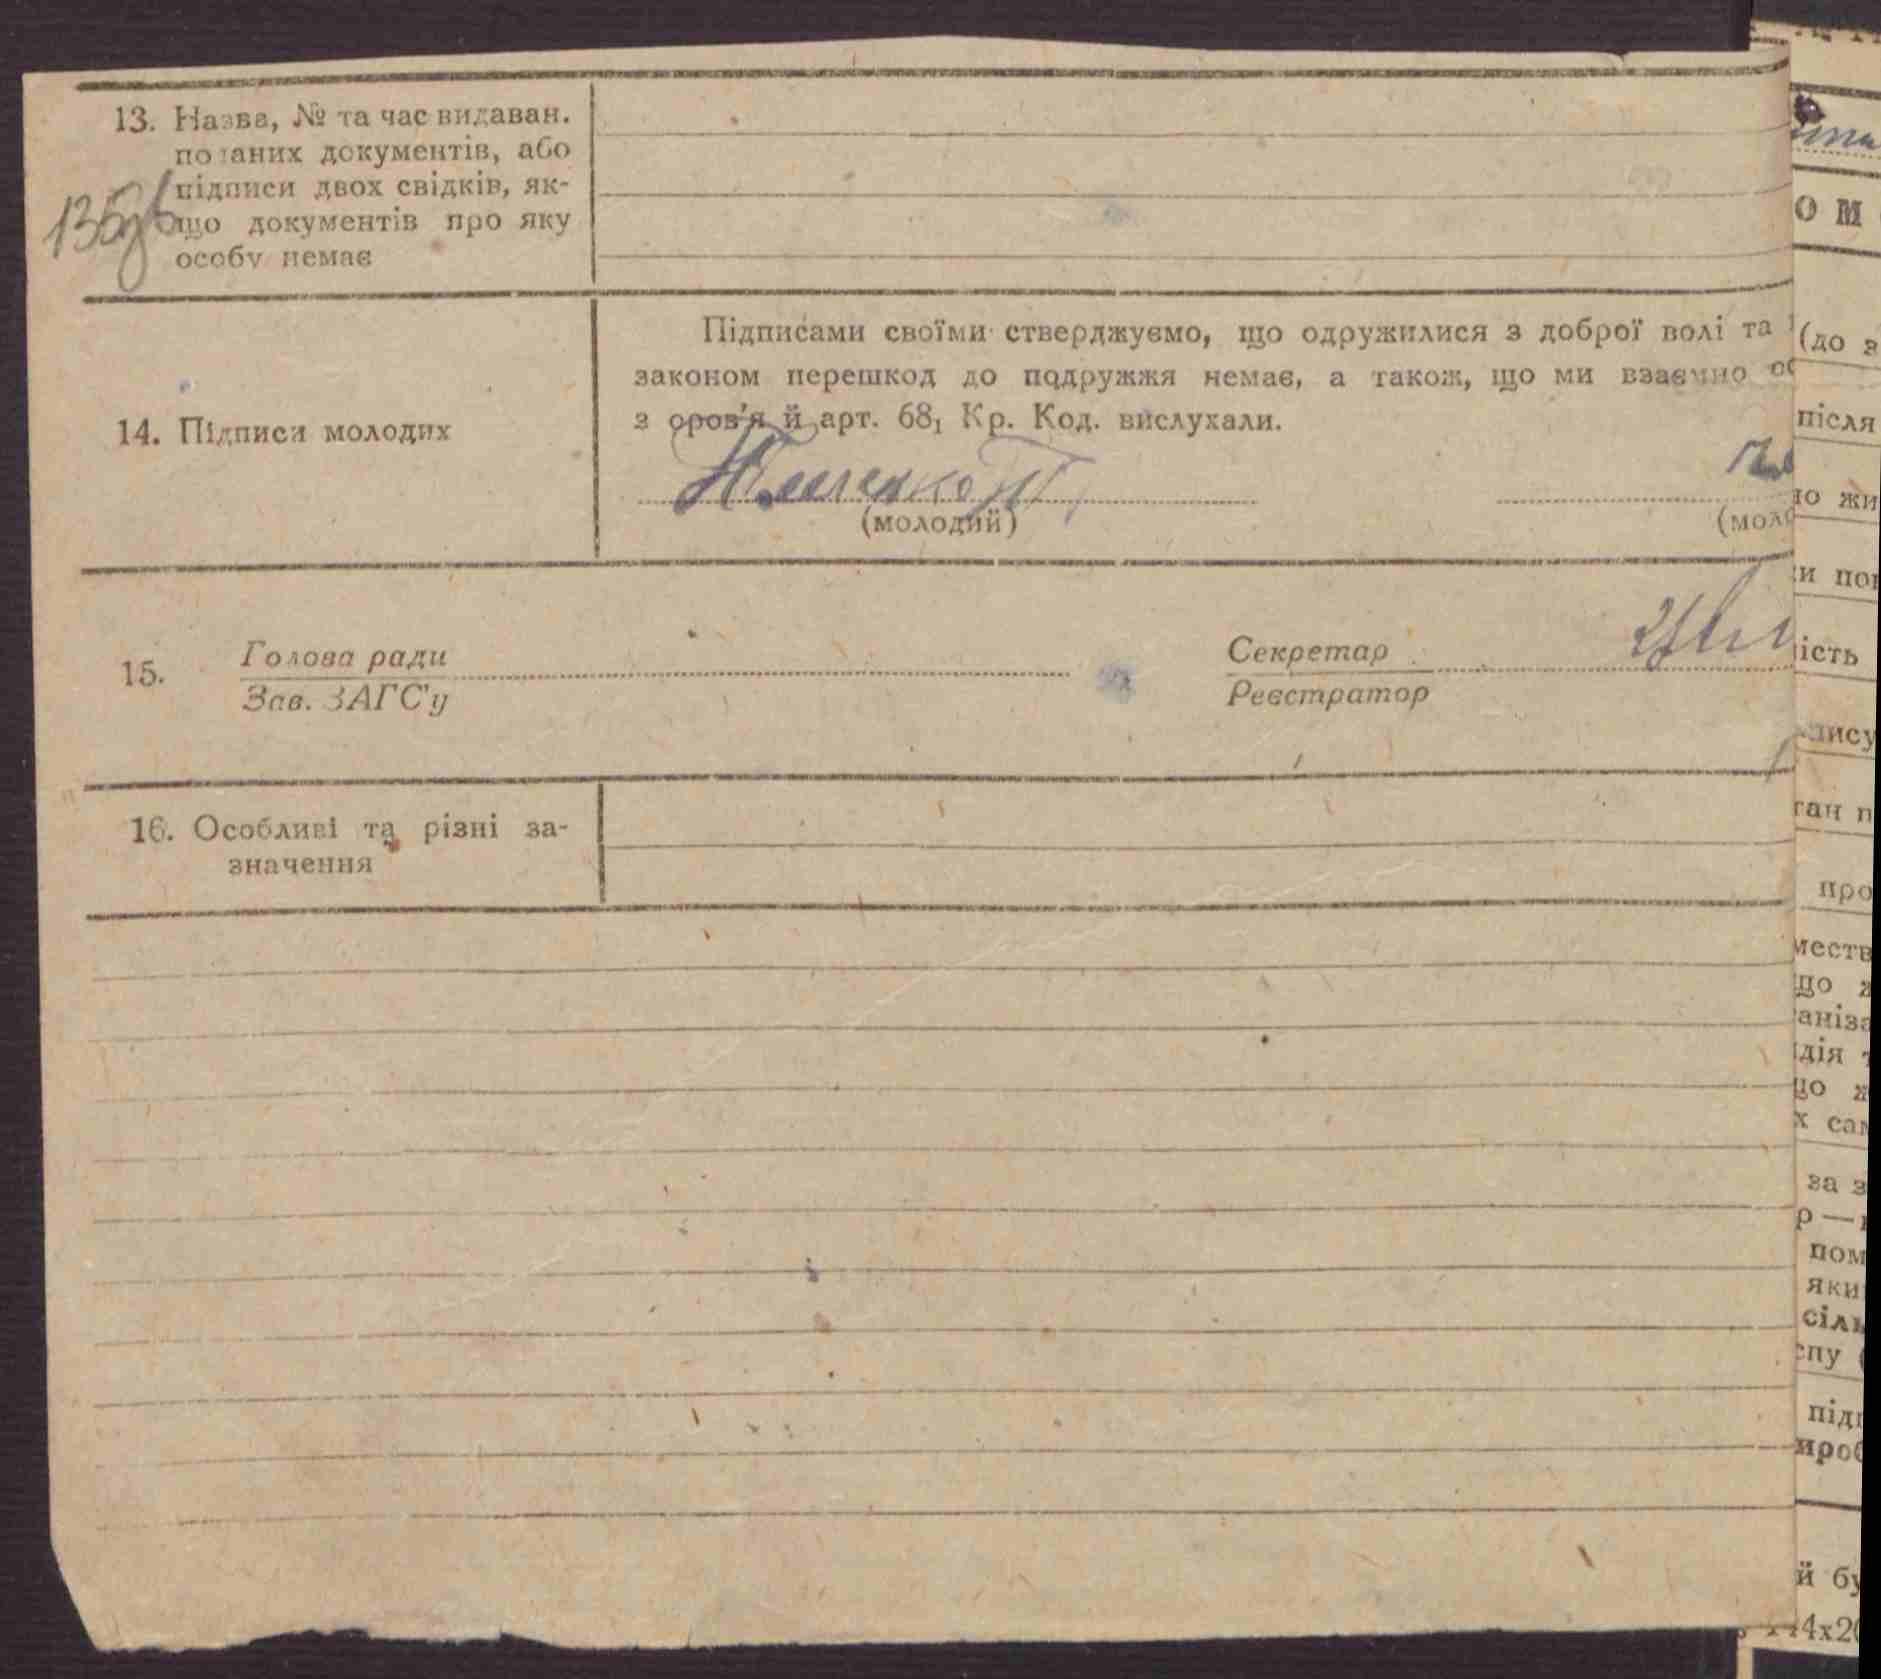 13. Назва, № та час видаван.
поданих документів, або
підписи двох свідків, як-
що документів про яку
особу немає
Підписами своїми стверджуємо, що одружилися з доброї волі та
законом перешкод до подружжя немає, а також, що ми взаємно
з оров'я й арт. 68₁ Кр. Код. вислухали.
14. Підписи молодих
(молодий)
(моло
15.
Голова ради
Зав. ЗАГС'у
Секретар
Реєстратор
16. Особливі та різні за-
значення
ом
(до з
після
но жи
ість
пису
про
що ж
аніза
дія т
що ж
х сам
за з
пом
яки
сіль
спу (
підп
й бу